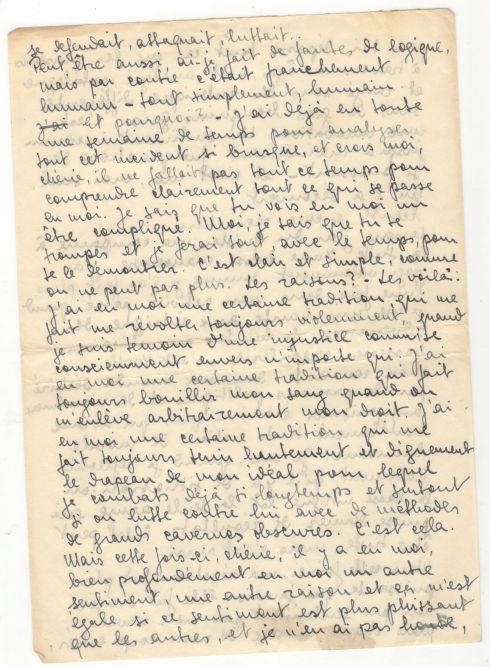 se defendait, attaquait luttait..
Peut être aussi ai-je fait de fautes, de logique,
mais par contre c'était franchement
humain - tout simplement humain.
J'ai et pourquoi?.. - J'ai déjà eu toute
une semaine de temps pour analyser
tout cet incident si brusque, et crois moi,
chérie, il ne fallait pas tout ce temps pour
comprendre clairement tout ce qui se passe
en moi. Je sais que tu vois en moi un
être compliqué. Moi, je sais que tu te
trompes et je ferai tout avec le temps, pour
te le démontrer. C'est clair et simple, comme
on ne peut pas plus. Les raisons? - Les voilà:
J'ai en moi une certaine tradition qui me
fait me révolter toujours violemment, quand
je suis temoin d'une injustice commise
consciemment envers n'importe qui. J'ai
en moi une certaine tradition qui fait
toujours bouillir mon sang quand on
m'enlève arbitrairement mon droit. J'ai
en moi une certaine tradition qui me
fait toujours tenir hautement et dignement
le drapeau de mon idéal pour lequel
je combats déjà si longtemps et surtout
si on lutte contre lui avec de méthodes
de grands cavernes obscures. C'est cela.
Mais cette fois-ci, chérie, il y a en moi,
bien profondément en moi un autre
sentiment, une autre raison et ça m'est
egale si ce sentiment est plus puissant
que les autres, et je n'en ai pas honte,